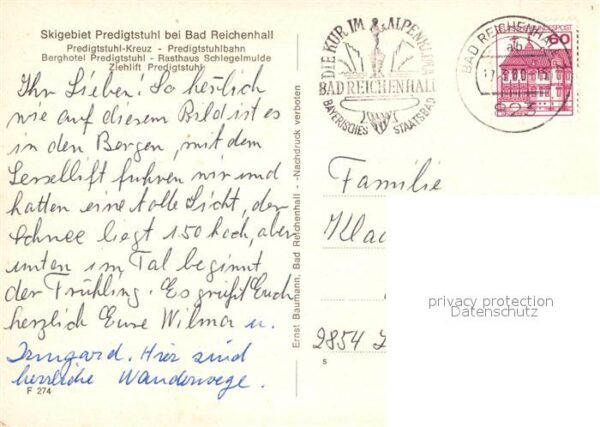 Skigebiet Predigtstuhl bei Bad Reichenhall
Predigtstuhl-Kreuz - Predigtstuhlbahn
Berghotel Predigtstuhl - Rasthaus Schlegelmulde
Ziehlift Predigtstuhl
Ihr Lieben! So herrlich
wie auf diesem Bild ist es
in den Bergen, mit dem
Sessellift fuhren wir und
hatten eine tolle Sicht, der
Schnee liegt 1.50 hoch, aber
unten im Tal beginnt
der Frühling. Es grüßt Euch
herzlich Eure Wilma u.
Irmgard. Hier sind
herrliche Wanderwege.
F 274
Ernst Baumann, Bad Reichenhall - Nachdruck verboten
DIE KUR IM ALPENKLIMA
BAD REICHENHALL
BAYERISCHES STAATSBAD
BAD REICHENHA
60
Familie
Kla
2854
s
privacy protection
Datenschutz